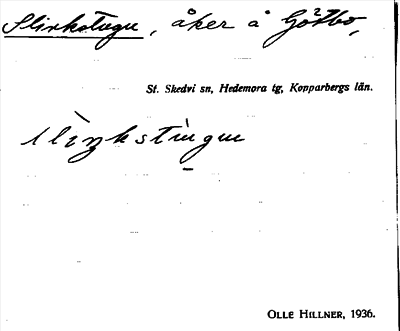 Slinkstugu, åker å Götbo,
St. Skedvi sn, Hedemora tg, Kopparbergs län.
OLLE HILLNER, 1936.